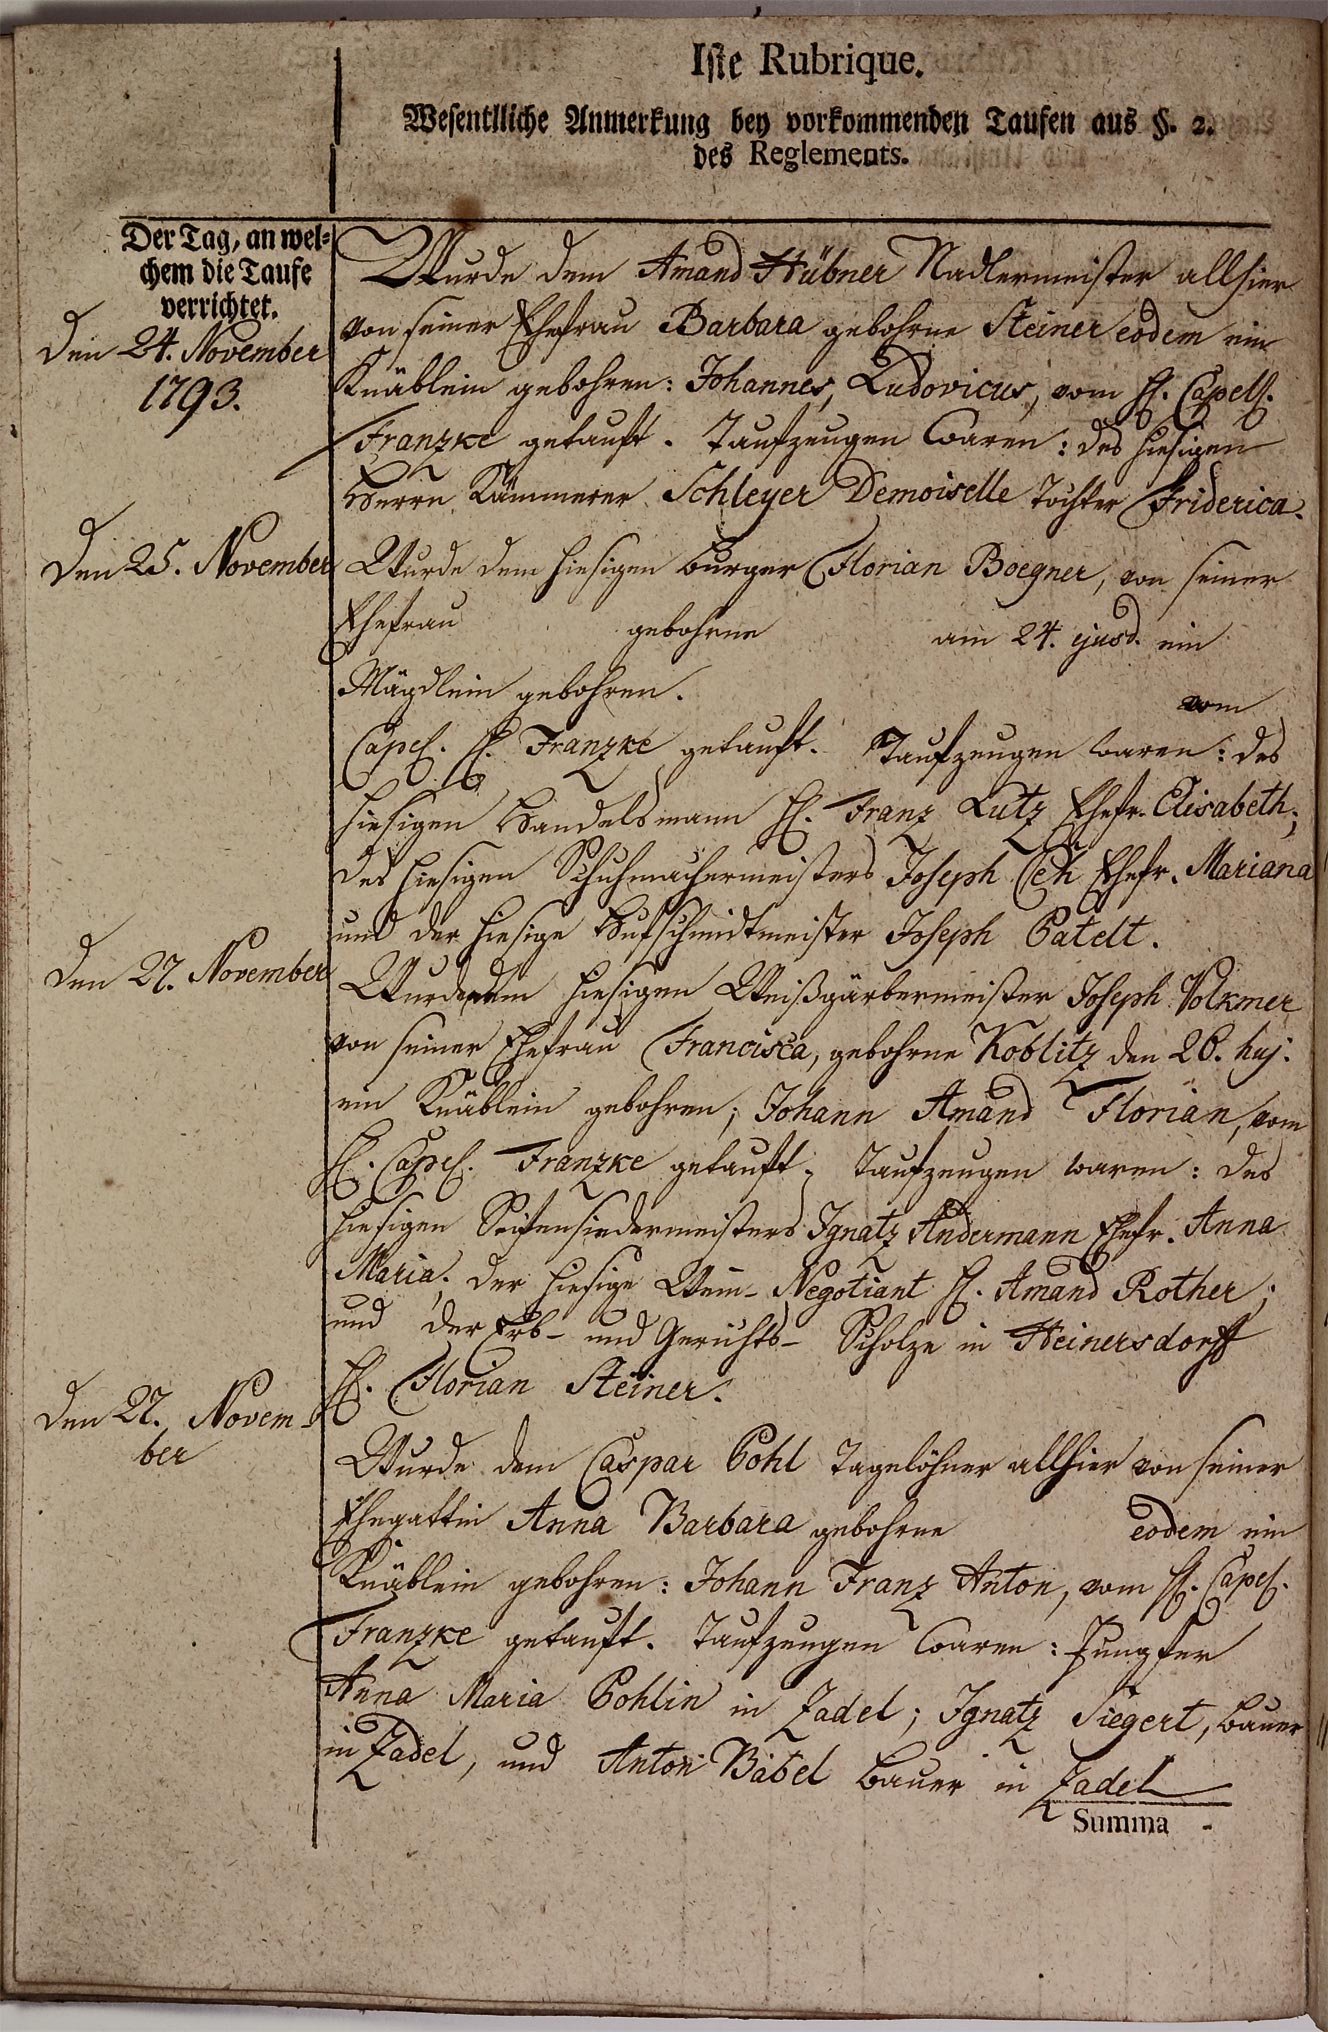 Iste Rubrique.
Wesentlliche Anmerkung bey vorkommenden Taufen aus §. 2.
des Reglements.
Der Tag, an wel-
chem die Taufe
verrichtet.
Den 24. November
1793.
Wurde dem Amand Hübner Nadlermeister allhier
von seiner Ehefrau Barbara gebohrne Steiner eodem ein
Knäblein gebohren: Johannes, Ludovicus, vom H. Capell.
Franzke getauft. Taufzeugen waren: des hiesigen
Herrn Kämmerer Schleyer Demoiselle Tochter Friderica.
Den 25. November
Wurde dem hiesigen Burger Florian Boegner, von seiner
Ehefrau gebohrne am 24. ejusd. ein
Mägdlein gebohren. vom
Capel. H. Franzke getauft. Taufzeugen waren: des
hiesigen Handelsmann H. Franz Lutz Ehefr. Elisabeth;
des hiesigen Schuhmachermeisters Joseph Ceh Ehefr. Mariana
und der hiesige Hufschmidtmeister Joseph Patelt.
Den 27. November
Wurde dem hiesigen Weißgärbermeister Joseph Volkmer
von seiner Ehefrau Francisca, gebohrne Koblitz den 26. huj:
ein Knäblein gebohren; Johann Amand Florian, vom
H. Capel. Franzke getauft; Taufzeugen waren: des
hiesigen Seifensiedermeisters Ignatz Andermann Ehefr. Anna
Maria; der hiesige Wein-Negotiant H. Amand Rother;
und der Erb- und Gerichts-Scholze in Heinersdorff
H. Florian Steiner.
Den 27. Novem-
ber
Wurde dem Caspar Pohl Tagelöhner allhier von seiner
Ehegattin Anna Barbara gebohrne eodem ein
Knäblein gebohren: Johann Franz Anton, vom H. Capel.
Franzke getauft. Taufzeugen waren: Jungfer
Anna Maria Pohlin in Zadel; Ignatz Siegert, Bauer
in Zadel, und Anton Babel Bauer in Zadel
Summa -